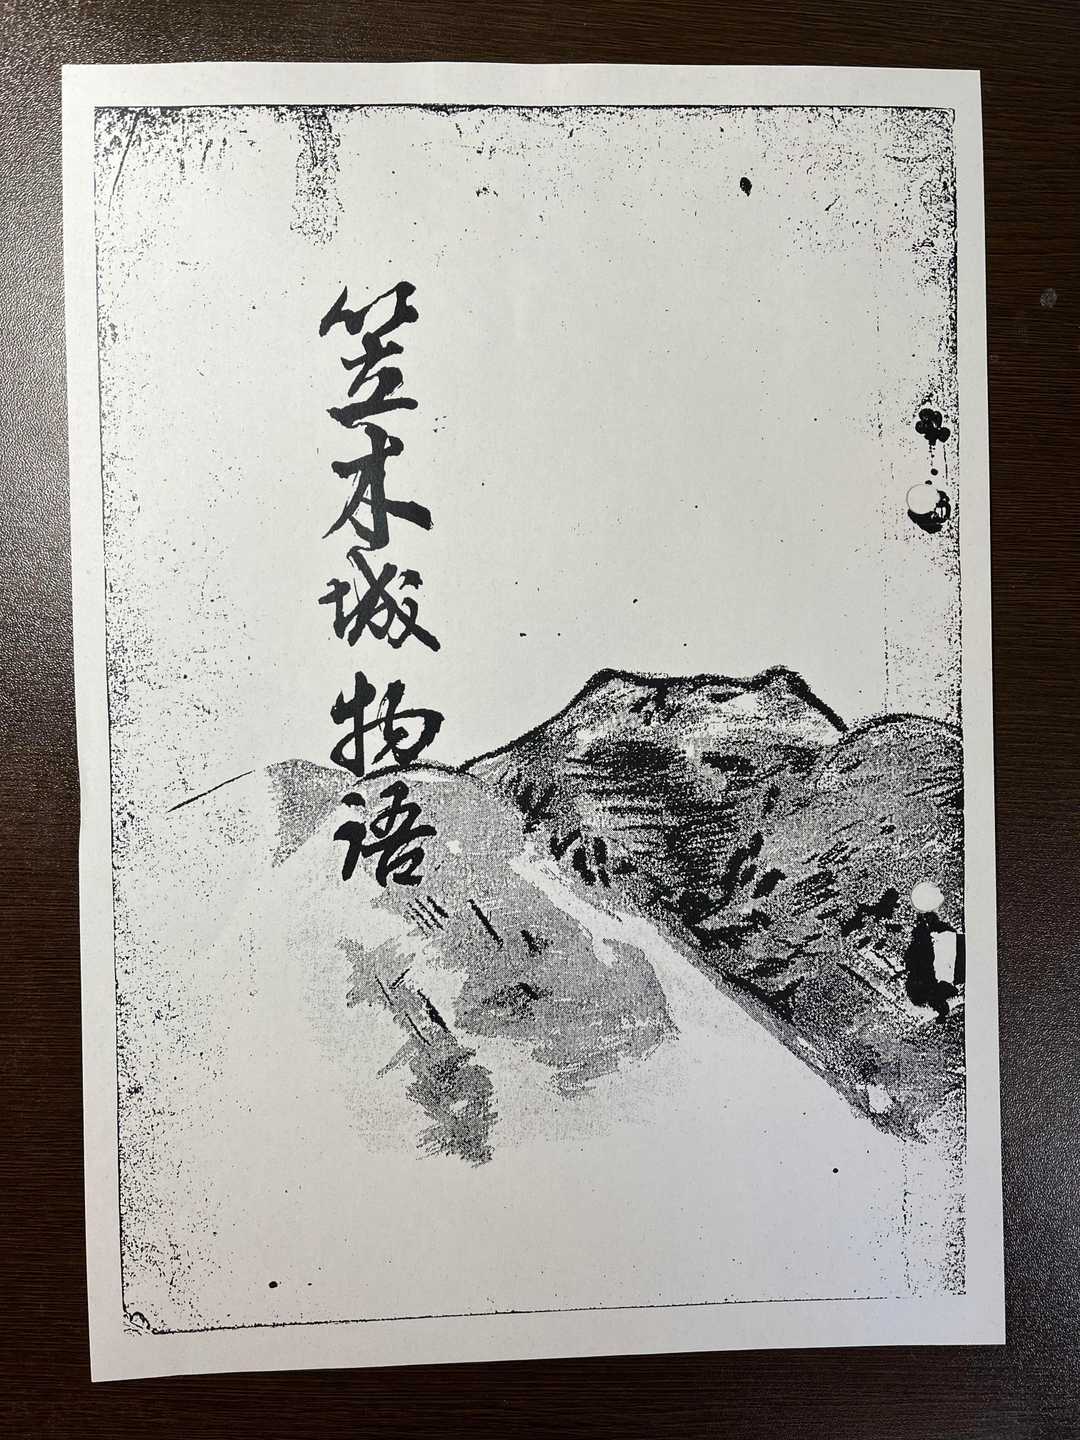 笠木城物語